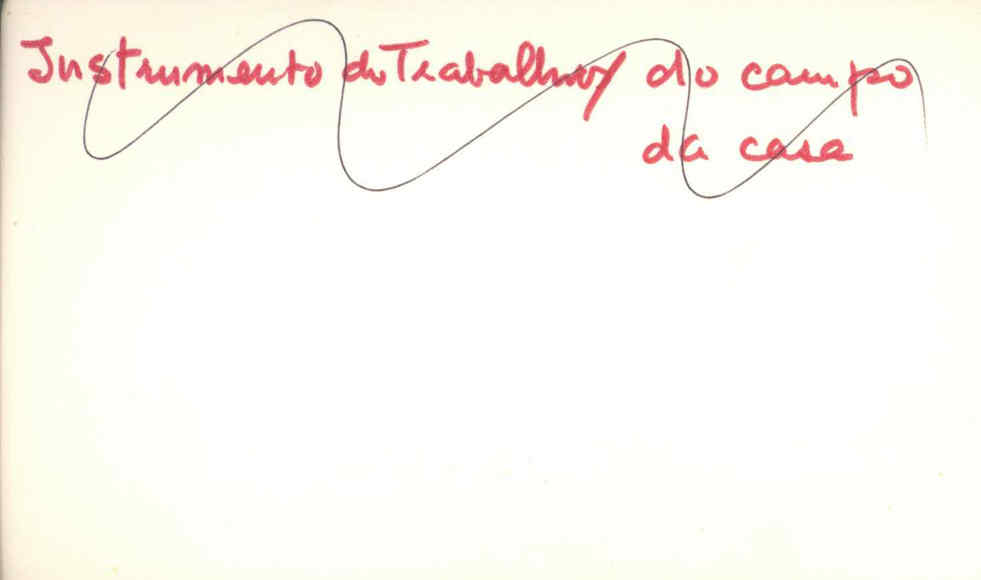 Instrumento do Trabalho / do campo
da casa